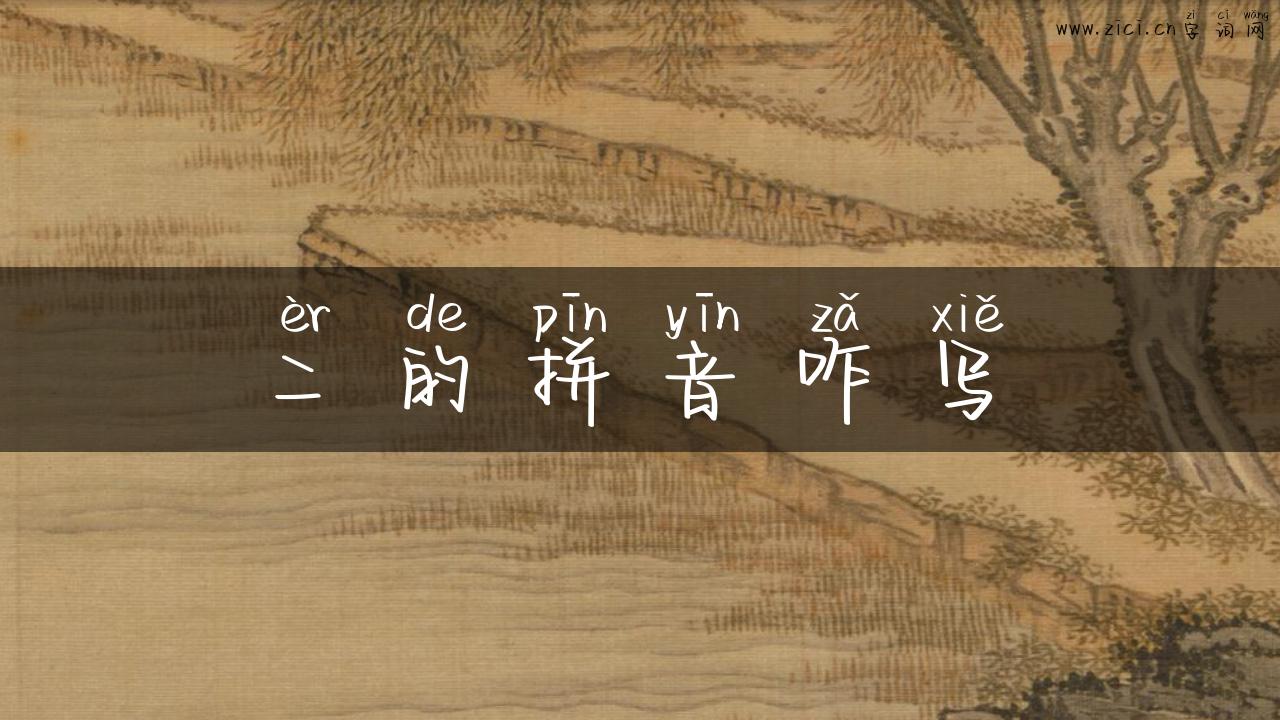 zì cí wǎng
www.zici.cn 字 词 网
èr de pīn yīn zǎ xiě
二 的 拼 音 咋 写